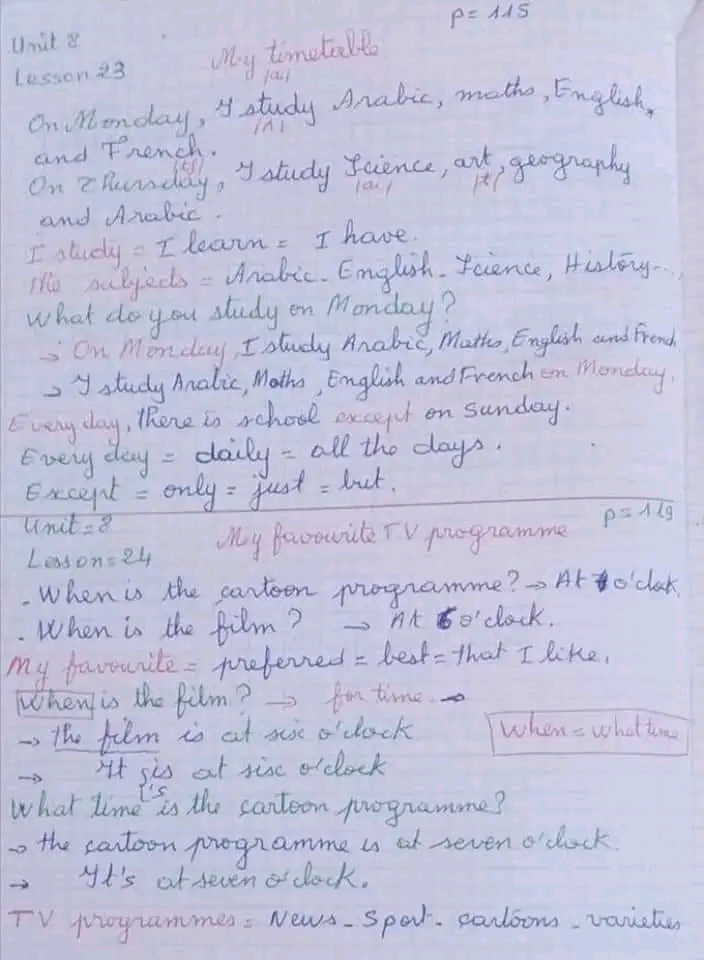 p=115
Unit 8
My timetable
Lesson 23
/ai/
On Monday, I study Arabic, maths, English,
/ʌ/
and French.
/tʃ/
On Thursday, I study Science, art, geography
/ai/ /t/
and Arabic.
I study = I learn = I have.
The subjects = Arabic - English - Science, History...,
What do you study on Monday?
→ On Monday, I study Arabic, Maths, English and French
→ I study Arabic, Maths, English and French on Monday.
Every day, there is school except on Sunday.
Every day = daily = all the days.
Except = only = just = but.
Unit = 8
p=119
My favourite TV programme
Lesson = 24
. When is the cartoon programme? → At o'clock.
. When is the film? → At 6 o'clock.
My favourite = preferred = best = that I like.
When is the film? → for time. →
→ the film is at sisc o'clock.
When = what time
→ It is at sisc o'clock
's
What time is the cartoon programme?
→ the cartoon programme is at seven o'clock.
→ It's at seven o'clock.
TV programmes = News - Sport - cartoons - varieties